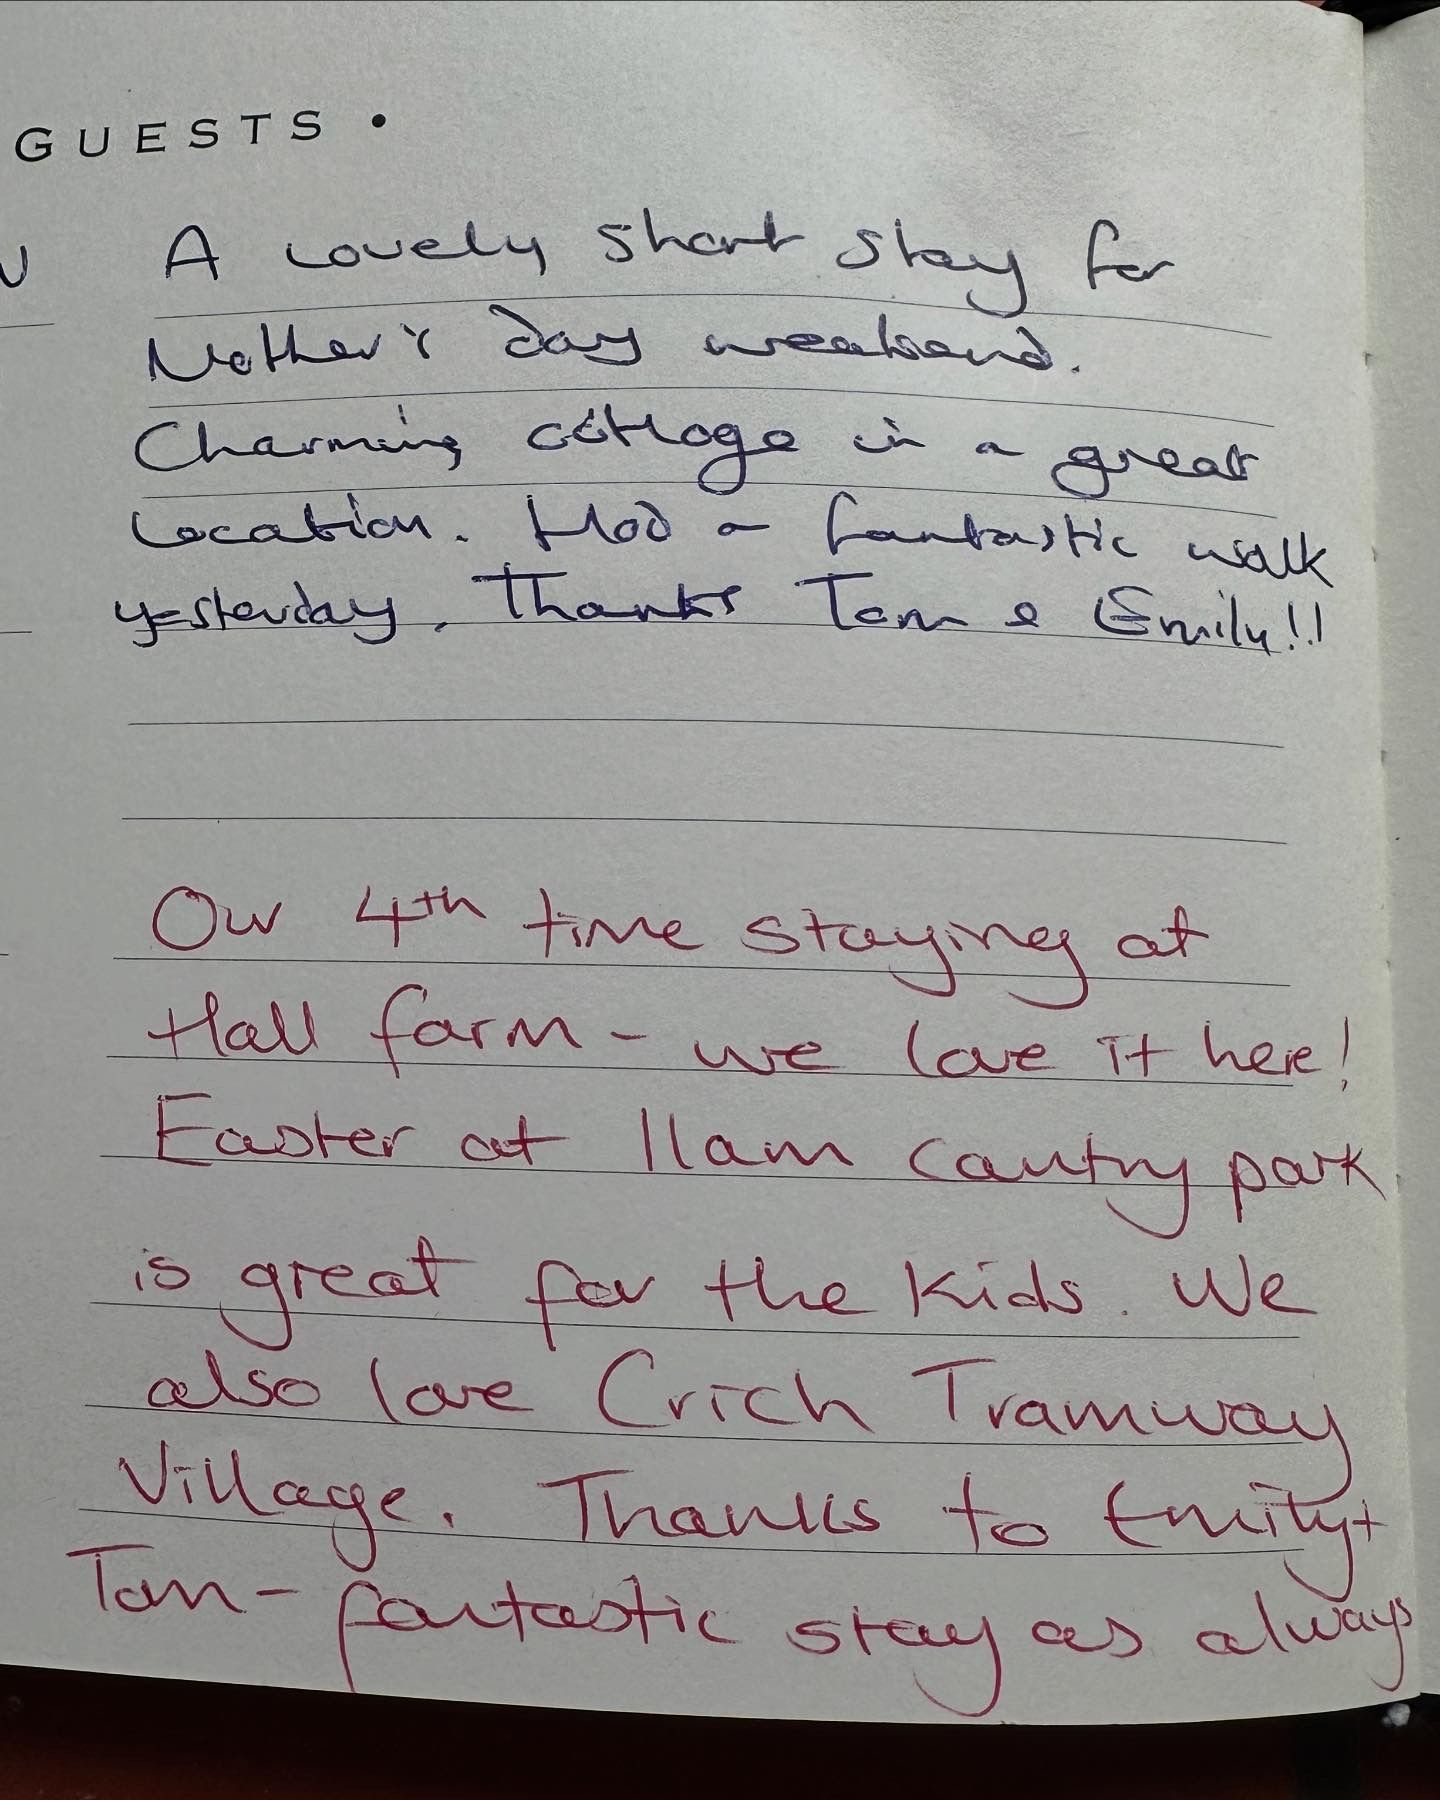 GUESTS •
A lovely short stay for
Mother's day weekend.
Charming cottage in a great
location. Had a fantastic walk
yesterday. Thanks Tom & Emily!!
Our 4th time staying at
Hall farm - we love it here!
Easter at Ilam Country park
is great for the kids. We
also love Crich Tramway
Village. Thanks to Emily +
Tom - fantastic stay as always